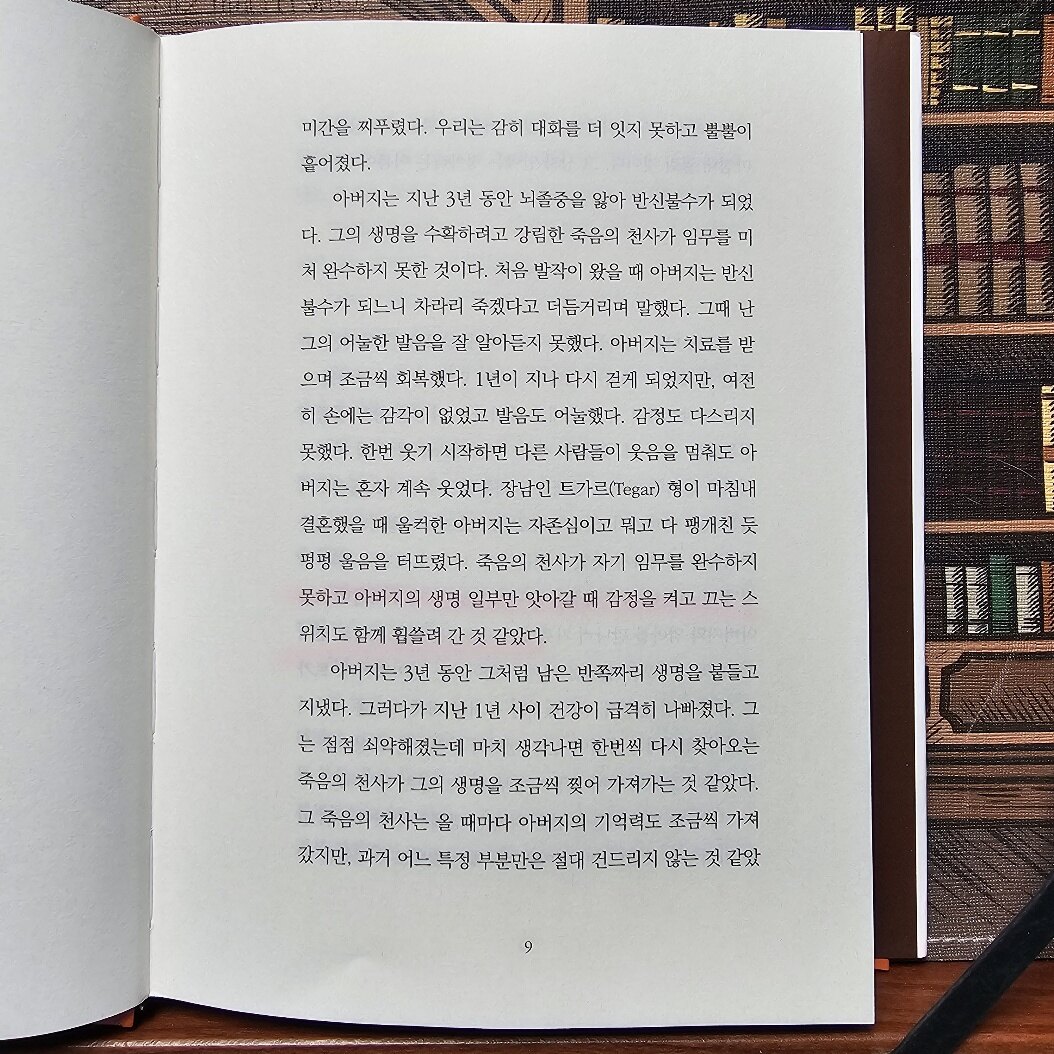 미간을 찌푸렸다. 우리는 감히 대화를 더 잇지 못하고 뿔뿔이
흩어졌다.
아버지는 지난 3년 동안 뇌졸중을 앓아 반신불수가 되었
다. 그의 생명을 수확하려고 강림한 죽음의 천사가 임무를 미
처 완수하지 못한 것이다. 처음 발작이 왔을 때 아버지는 반신
불수가 되느니 차라리 죽겠다고 더듬거리며 말했다. 그때 난
그의 어눌한 발음을 잘 알아듣지 못했다. 아버지는 치료를 받
으며 조금씩 회복했다. 1년이 지나 다시 걷게 되었지만, 여전
히 손에는 감각이 없었고 발음도 어눌했다. 감정도 다스리지
못했다. 한번 웃기 시작하면 다른 사람들이 웃음을 멈춰도 아
버지는 혼자 계속 웃었다. 장남인 트가르(Tegar) 형이 마침내
결혼했을 때 울컥한 아버지는 자존심이고 뭐고 다 팽개친 듯
펑펑 울음을 터뜨렸다. 죽음의 천사가 자기 임무를 완수하지
못하고 아버지의 생명 일부만 앗아갈 때 감정을 켜고 끄는 스
위치도 함께 휩쓸려 간 것 같았다.
아버지는 3년 동안 그처럼 남은 반쪽짜리 생명을 붙들고
지냈다. 그러다가 지난 1년 사이 건강이 급격히 나빠졌다. 그
는 점점 쇠약해졌는데 마치 생각나면 한번씩 다시 찾아오는
죽음의 천사가 그의 생명을 조금씩 찢어 가져가는 것 같았다.
그 죽음의 천사는 올 때마다 아버지의 기억력도 조금씩 가져
갔지만, 과거 어느 특정 부분만은 절대 건드리지 않는 것 같았
9